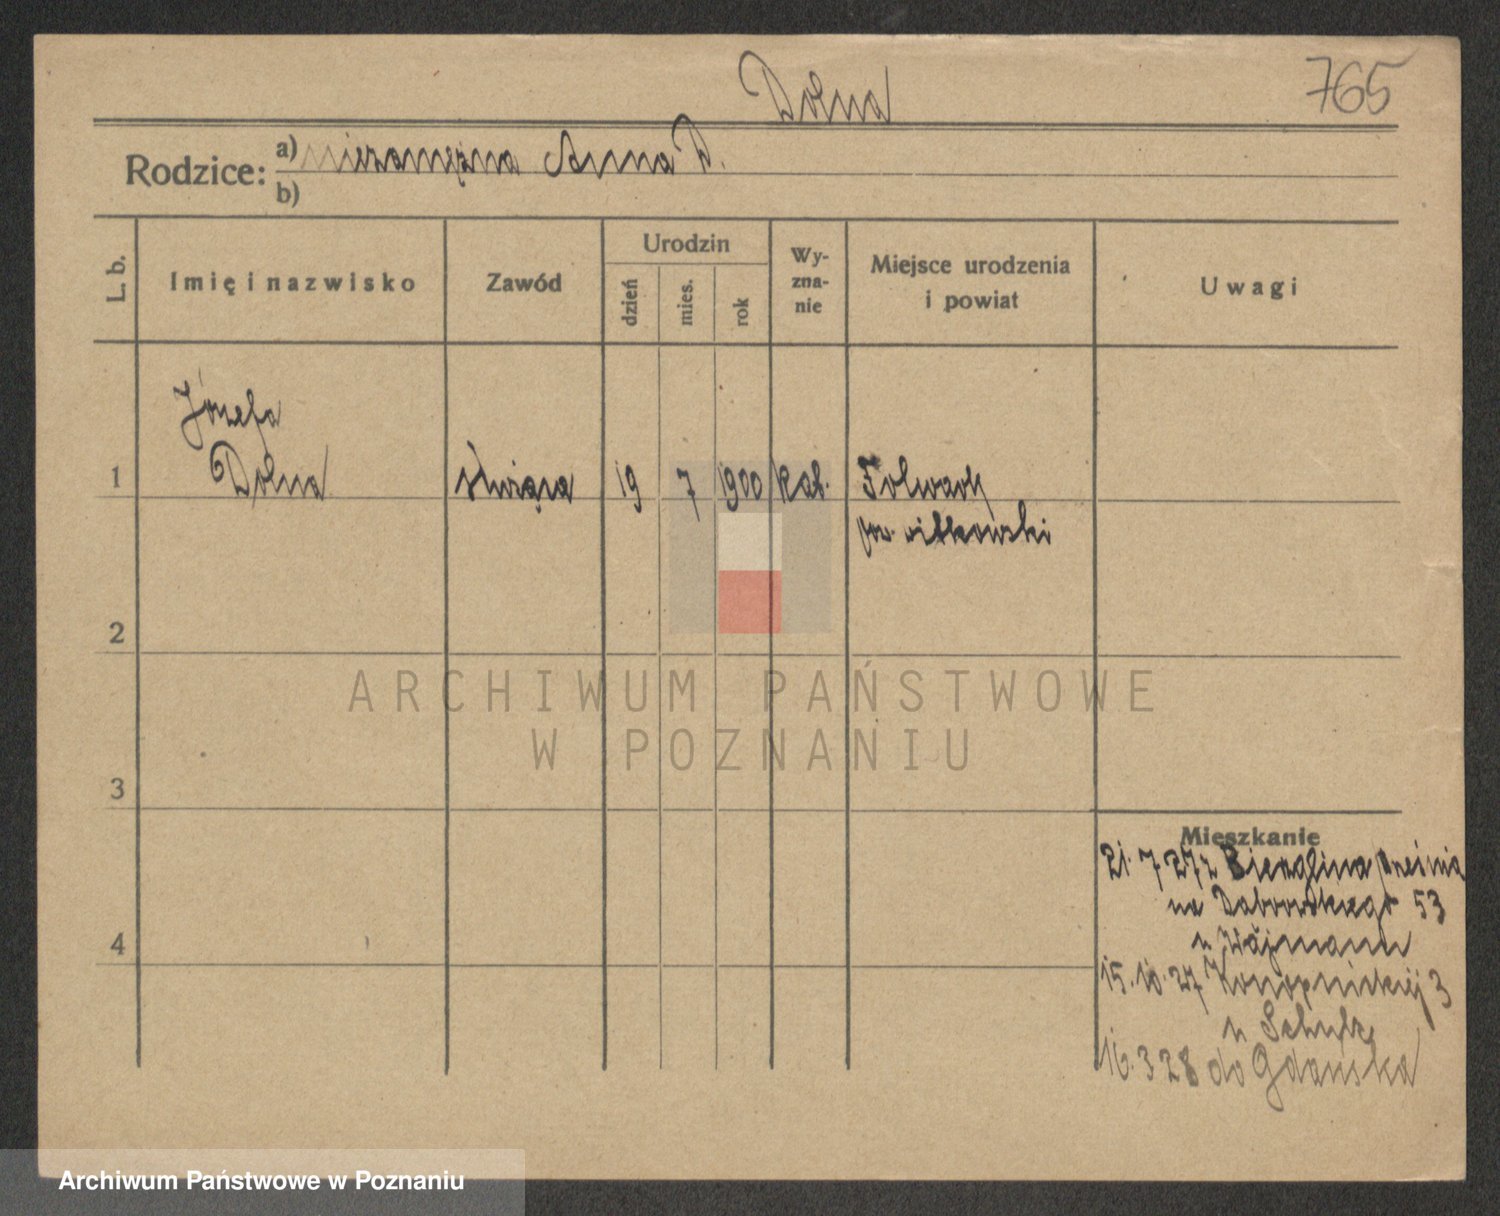 Dolna
765
Rodzice: a) niezamężna Anna D.
b)
L. b.
Imię i nazwisko
Zawód
Urodzin
dzień
mies.
rok
Wy-
zna-
nie
Miejsce urodzenia
i powiat
Uwagi
Józefa
1 Dolna służąca 19 7 1900 kat. Folwark
pow. witkowski
2
ARCHIWUM PAŃSTWOWE
W POZNANIU
3
Mieszkanie
21. 7 27 z Bierzglina
na Dąbrowskiego 53
4
15. 10. 27 Konopnickiej 3
u Schulz
16. 3 28 do Gdańska
Archiwum Państwowe w Poznaniu